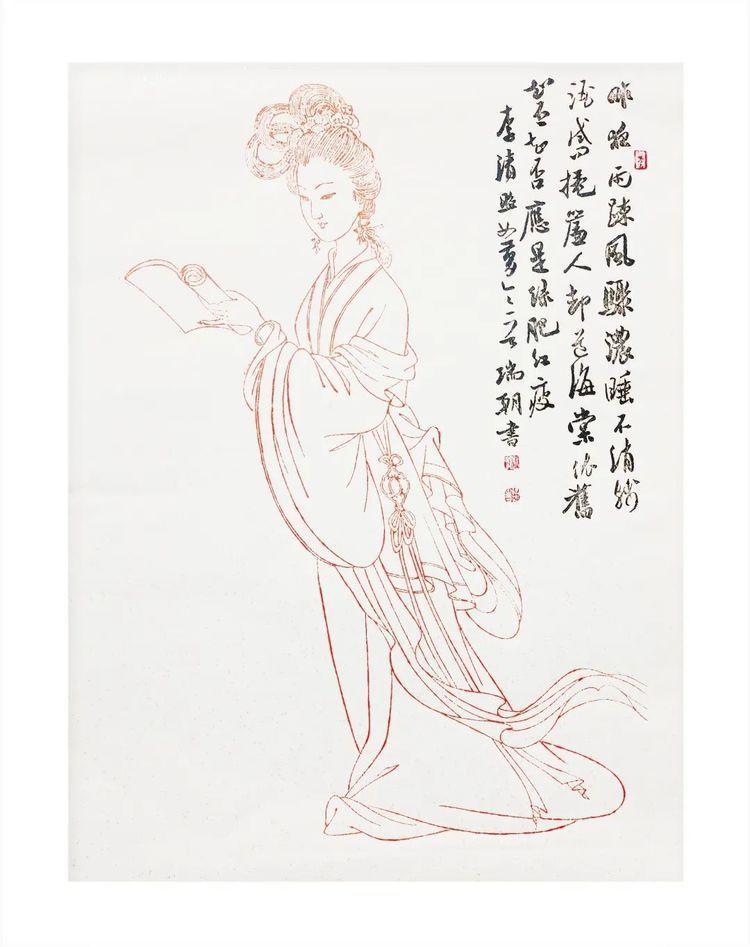 昨夜雨踈風驟濃睡不消殘
酒試問捲簾人却道海棠依舊
知否知否應是綠肥紅瘦
李清照如夢令一首瑞朝書